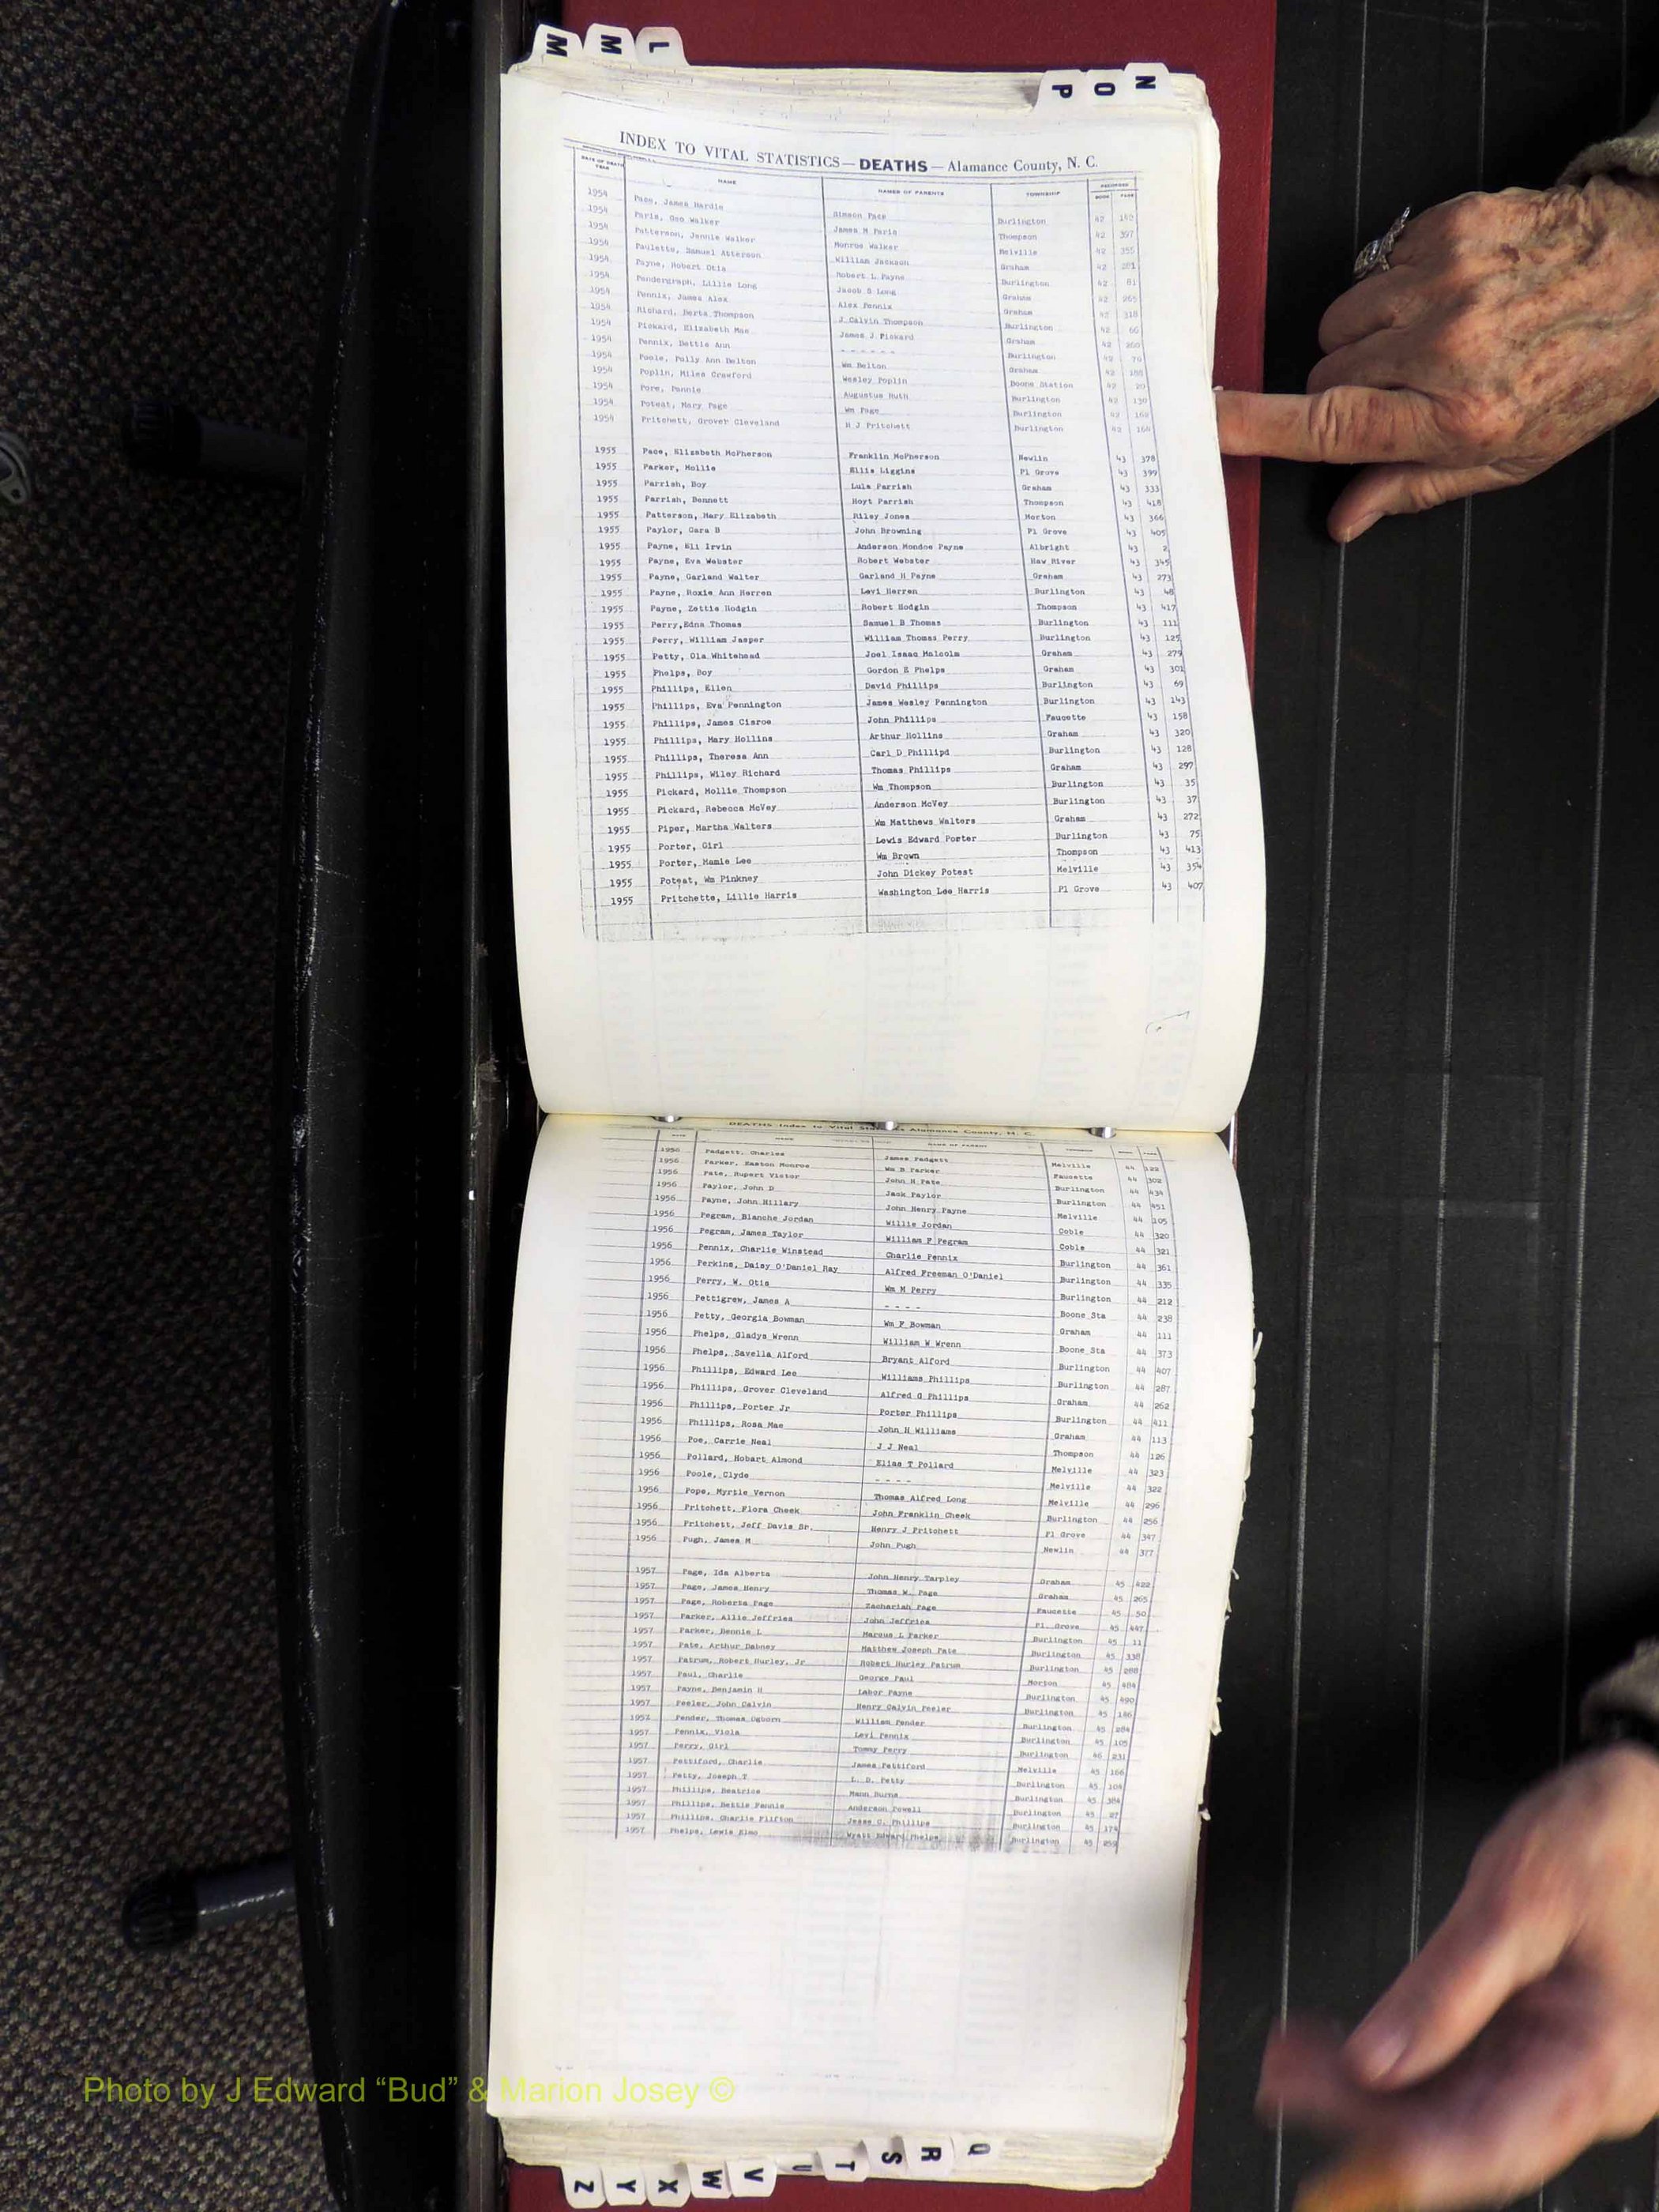 M M L
P O N
INDEX TO VITAL STATISTICS — DEATHS — Alamance County, N. C.
DATE OF DEATH YEAR NAME NAMES OF PARENTS TOWNSHIP RECORDED BOOK PAGE
1954 Pace, James Hardie Simeon Pace Burlington 42 152
1954 Paris, Geo Walker James M Paris Thompson 42 397
1954 Patterson, Jennie Walker Monroe Walker Melville 42 355
1954 Paulette, Samuel Atterson William Jackson Graham 42 281
1954 Payne, Robert Otis Robert L Payne Burlington 42 81
1954 Pendergraph, Lillie Long Jacob S Long Graham 42 265
1954 Pennix, James Alex Alex Pennix Graham 42 318
1954 Richard, Berta Thompson J Calvin Thompson Burlington 42 66
1954 Pickard, Elizabeth Mae James J Pickard Graham 42 260
1954 Pennix, Bettie Ann - - - - - - Burlington 42 70
1954 Poole, Polly Ann Belton Wm Belton Graham 42 188
1954 Poplin, Miles Crawford Wesley Poplin Boone Station 42 20
1954 Pore, Pennie Augustus Ruth Burlington 42 130
1954 Poteat, Mary Page Wm Page Burlington 42 162
1954 Pritchett, Grover Cleveland H J Pritchett Burlington 42 164
1955 Pace, Elizabeth McPherson Franklin McPherson Newlin 43 378
1955 Parker, Mollie Ellis Liggins Pl Grove 43 399
1955 Parrish, Boy Lula Parrish Graham 43 333
1955 Parrish, Bennett Hoyt Parrish Thompson 43 418
1955 Patterson, Mary Elizabeth Riley Jones Morton 43 366
1955 Paylor, Cara B John Browning Pl Grove 43 405
1955 Payne, Eli Irvin Anderson Mondoe Payne Albright 43 2
1955 Payne, Eva Webster Robert Webster Haw River 43 345
1955 Payne, Garland Walter Garland H Payne Graham 43 273
1955 Payne, Roxie Ann Herren Levi Herren Burlington 43 48
1955 Payne, Zettie Hodgin Robert Hodgin Thompson 43 417
1955 Perry,Edna Thomas Samuel B Thomas Burlington 43 111
1955 Perry, William Jasper William Thomas Perry Burlington 43 125
1955 Petty, Ola Whitehead Joel Isaac Malcolm Graham 43 279
1955 Phelps, Boy Gordon E Phelps Graham 43 301
1955 Phillips, Ellen David Phillips Burlington 43 69
1955 Phillips, Eva Pennington James Wesley Pennington Burlington 43 143
1955 Phillips, James Cisroe John Phillips Faucette 43 158
1955 Phillips, Mary Hollins Arthur Hollins Graham 43 320
1955 Phillips, Theresa Ann Carl D Phillipd Burlington 43 128
1955 Phillips, Wiley Richard Thomas Phillips Graham 43 297
1955 Pickard, Mollie Thompson Wm Thompson Burlington 43 35
1955 Pickard, Rebecca McVey Anderson McVey Burlington 43 37
1955 Piper, Martha Walters Wm Matthews Walters Graham 43 272
1955 Porter, Girl Lewis Edward Porter Burlington 43 75
1955 Porter, Mamie Lee Wm Brown Thompson 43 413
1955 Poteat, Wm Pinkney John Dickey Poteat Melville 43 354
1955 Pritchette, Lillie Harris Washington Lee Harris Pl Grove 43 407
DEATHS Index to Vital Alamance County, N. C.
DATE NAME NAME OF PARENT
1956 Padgett, Charles James Padgett Melville 44 122
1956 Parker, Easton Monroe Wm B Parker Faucette 44 302
1956 Pate, Rupert Victor John H Pate Burlington 44 434
1956 Paylor, John D Jack Paylor Burlington 44 451
1956 Payne, John Hillary John Henry Payne Melville 44 105
1956 Pegram, Blanche Jordan Willie Jordan Coble 44 320
1956 Pegram, James Taylor William F Pegram Coble 44 321
1956 Pennix, Charlie Winstead Charlie Pennix Burlington 44 361
1956 Perkins, Daisy O'Daniel Ray Alfred Freeman O'Daniel Burlington 44 335
1956 Perry, W. Otis Wm M Perry Burlington 44 212
1956 Pettigrew, James A - - - - Boone Sta 44 238
1956 Petty, Georgia Bowman Wm F Bowman Graham 44 111
1956 Phelps, Gladys Wrenn William W Wrenn Boone Sta 44 373
1956 Phelps, Savella Alford Bryant Alford Burlington 44 407
1956 Phillips, Edward Lee Williams Phillips Burlington 44 287
1956 Phillips, Grover Cleveland Alfred G Phillips Graham 44 262
1956 Phillips, Porter Jr Porter Phillips Burlington 44 411
1956 Phillips, Rosa Mae John H Williams Graham 44 113
1956 Poe, Carrie Neal J J Neal Thompson 44 126
1956 Pollard, Hobart Almond Elias T Pollard Melville 44 323
1956 Poole, Clyde - - - - Melville 44 322
1956 Pope, Myrtle Vernon Thomas Alfred Long Melville 44 296
1956 Pritchett, Flora Cheek John Franklin Cheek Burlington 44 256
1956 Pritchett, Jeff Davis Sr. Henry J Pritchett Pl Grove 44 347
1956 Pugh, James M John Pugh Newlin 44 377
1957 Page, Ida Alberta John Henry Tarpley Graham 45 422
1957 Page, James Henry Thomas W. Page Graham 45 265
1957 Page, Roberta Page Zachariah Page Faucette 45 50
1957 Parker, Allie Jeffries John Jeffries Pl. Grove 45 447
1957 Parker, Bennie L Marcus L Parker Burlington 45 11
1957 Pate, Arthur Dabney Matthew Joseph Pate Burlington 45 338
1957 Patrum, Robert Hurley, Jr Robert Hurley Patrum Burlington 45 288
1957 Paul, Charlie George Paul Morton 45 484
1957 Payne, Benjamin H Labor Payne Burlington 45 490
1957 Peeler, John Calvin Henry Calvin Peeler Burlington 45 186
1957 Pender, Thomas Ogborn William Pender Burlington 45 284
1957 Pennix, Viola Levi Pennix Burlington 45 105
1957 Perry, Girl Tommy Perry Burlington 46 231
1957 Pettiford, Charlie James Pettiford Melville 45 166
1957 Petty, Joseph T L. D. Petty Burlington 45 104
1957 Phillips, Beatrice Mann Burns Burlington 45 384
1957 Phillips, Bettie Fennie Anderson Powell Burlington 45 27
1957 Phillips, Charlie Flifton Jesse C. Phillips Burlington 45 174
1957 Phelps, Lewis Elmo Wyatt Edward Phelps Burlington 45 259
Photo by J Edward “Bud” & Marion Josey ©
Z Y X W V U T S R Q